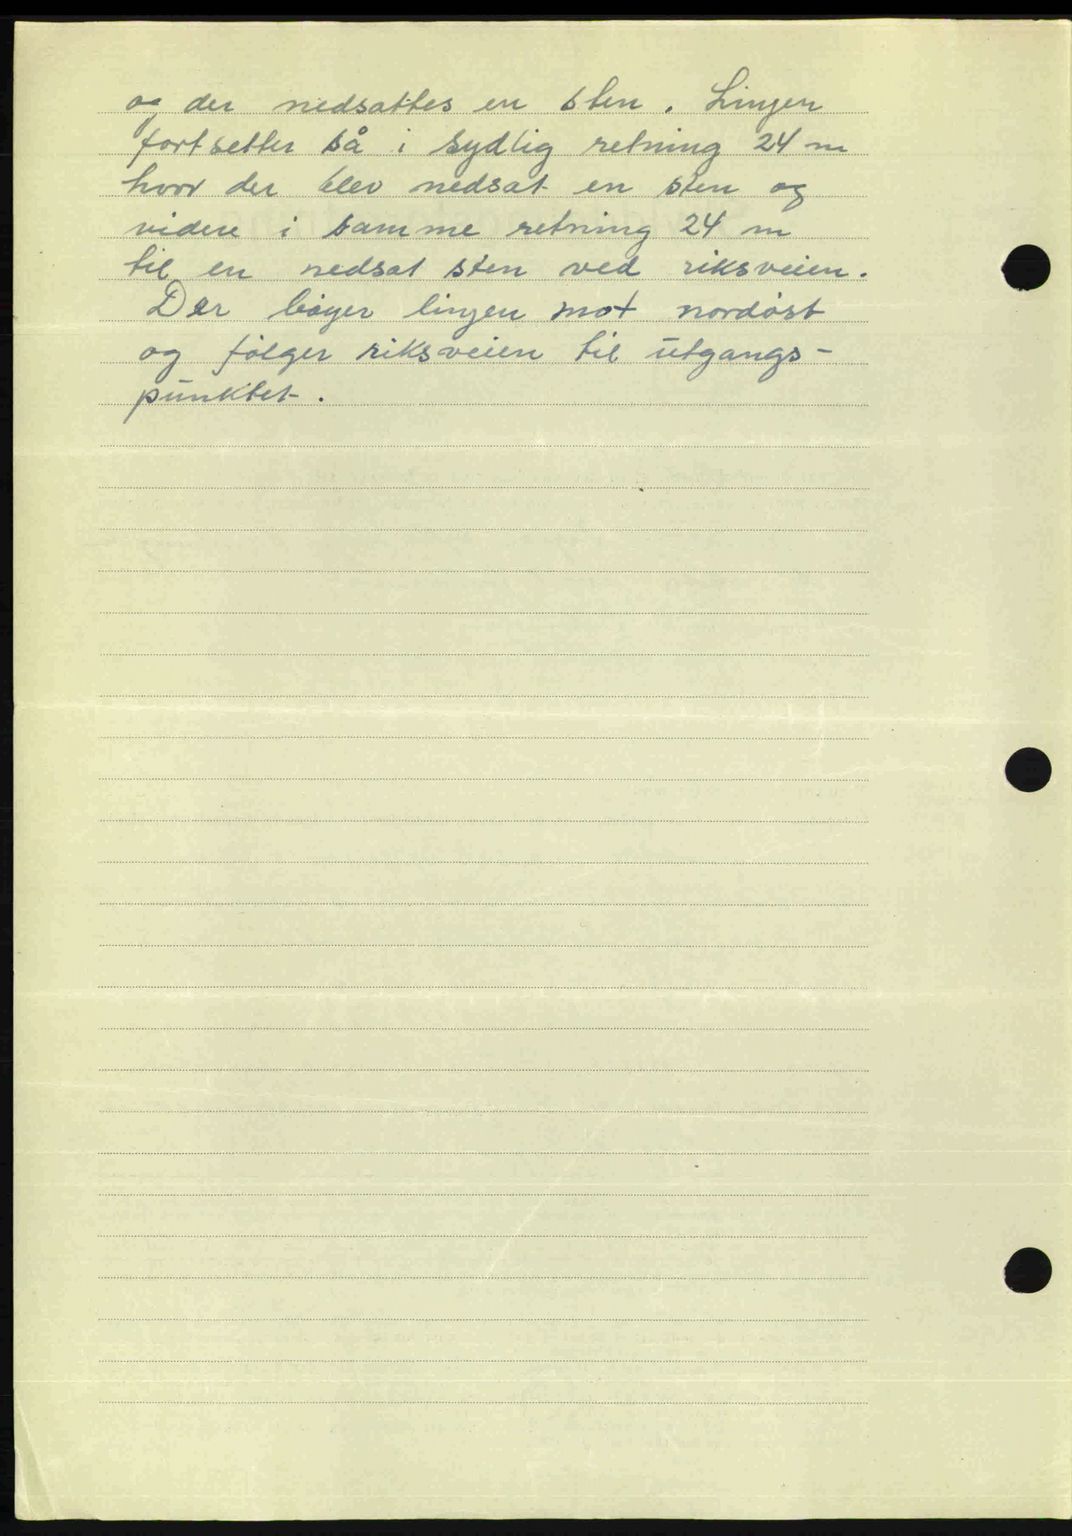 og der nedsattes en sten. Linjen
fortsetter så i sydlig retning 24 m
hvor der blev nedsat en sten og
videre i samme retning 24 m
til en nedsat sten ved riksveien.
Der bøyer linjen mot nordøst
og følger riksveien til utgangs-
punktet.